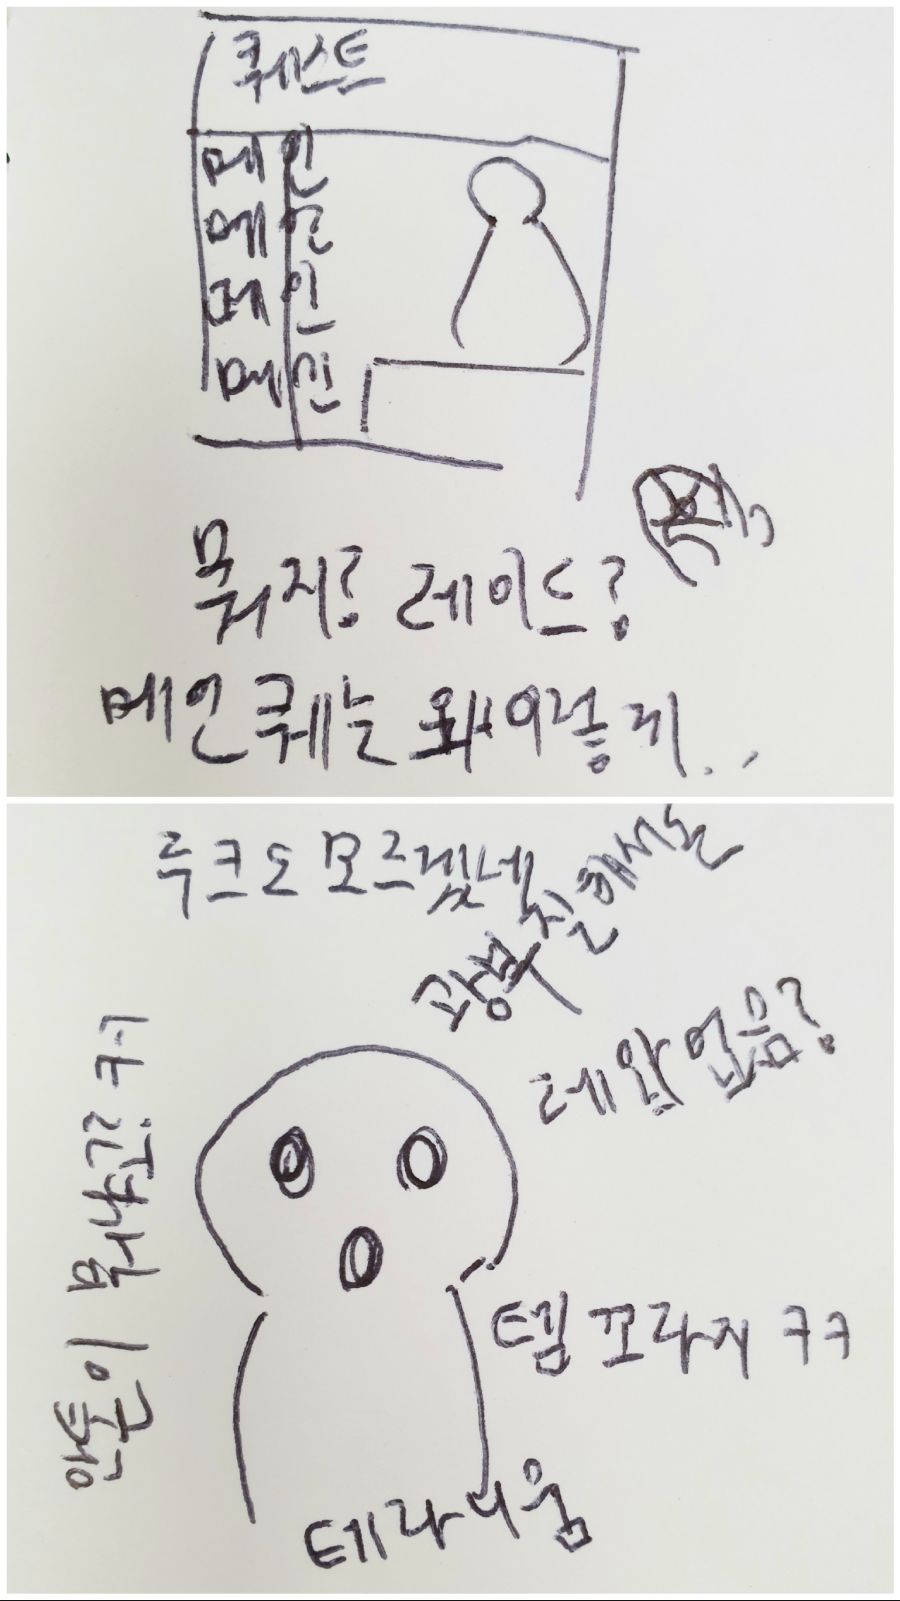 퀘스트
메인
메인
메인
메인
뭐지? 레이드?
메인퀘는 왜 이렇지..
루크도 모르겠네
광부질해서는
데왑 없음?
템 꼬라지 ㅋㅋ
테라니움
행운이 복사긴 ㅋㅋ